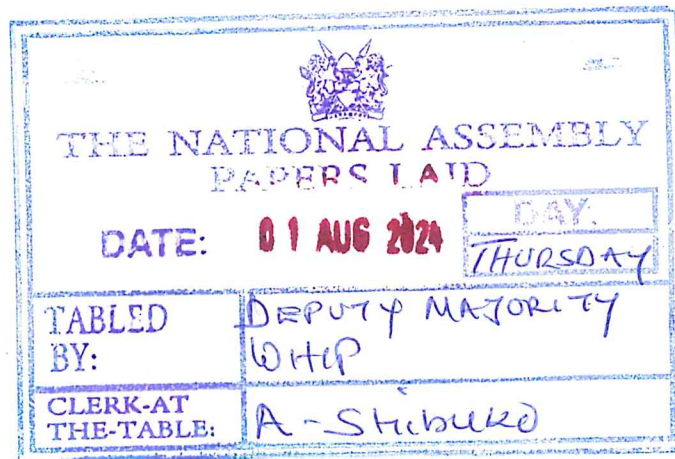 THE NATIONAL ASSEMBLY
PAPERS LAID
DATE: 01 AUG 2024
DAY.
THURSDAY
TABLED
BY:
DEPUTY MAJORITY
WHIP
CLERK-AT
THE-TABLE:
A-Shibuko